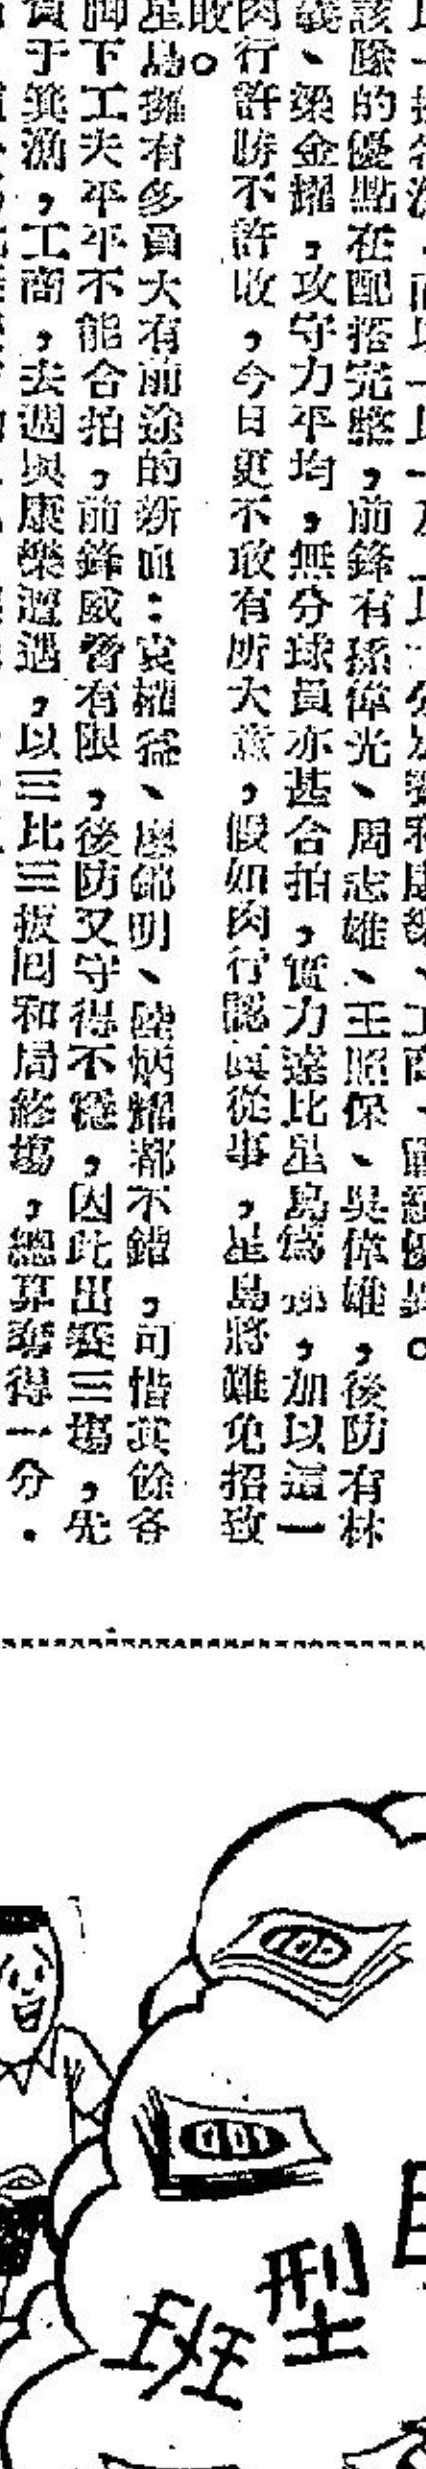 該隊的優點在配搭完整，前鋒有孫偉光、周志雄、王照保、吳偉雄，後防有林
義、梁金耀，攻守力平均，無分球員亦甚合拍，實力遠比星島為強，加以這一
肉行許勝不許敗，今日更不敢有所大意，假如肉行認真從事，星島將難免招致
敗。
星島擁有多員大有前途的新血：袁權益、廖錦明、陸炳耀都不錯，可惜其餘各
脚下工夫平平不能合拍，前鋒威脅有限，後防又守得不穩，因此出賽三場，先
負于箕漁，工商，去週與康樂遭遇，以三比三扳回和局終場，總算奪得一分．
型
班
100
100